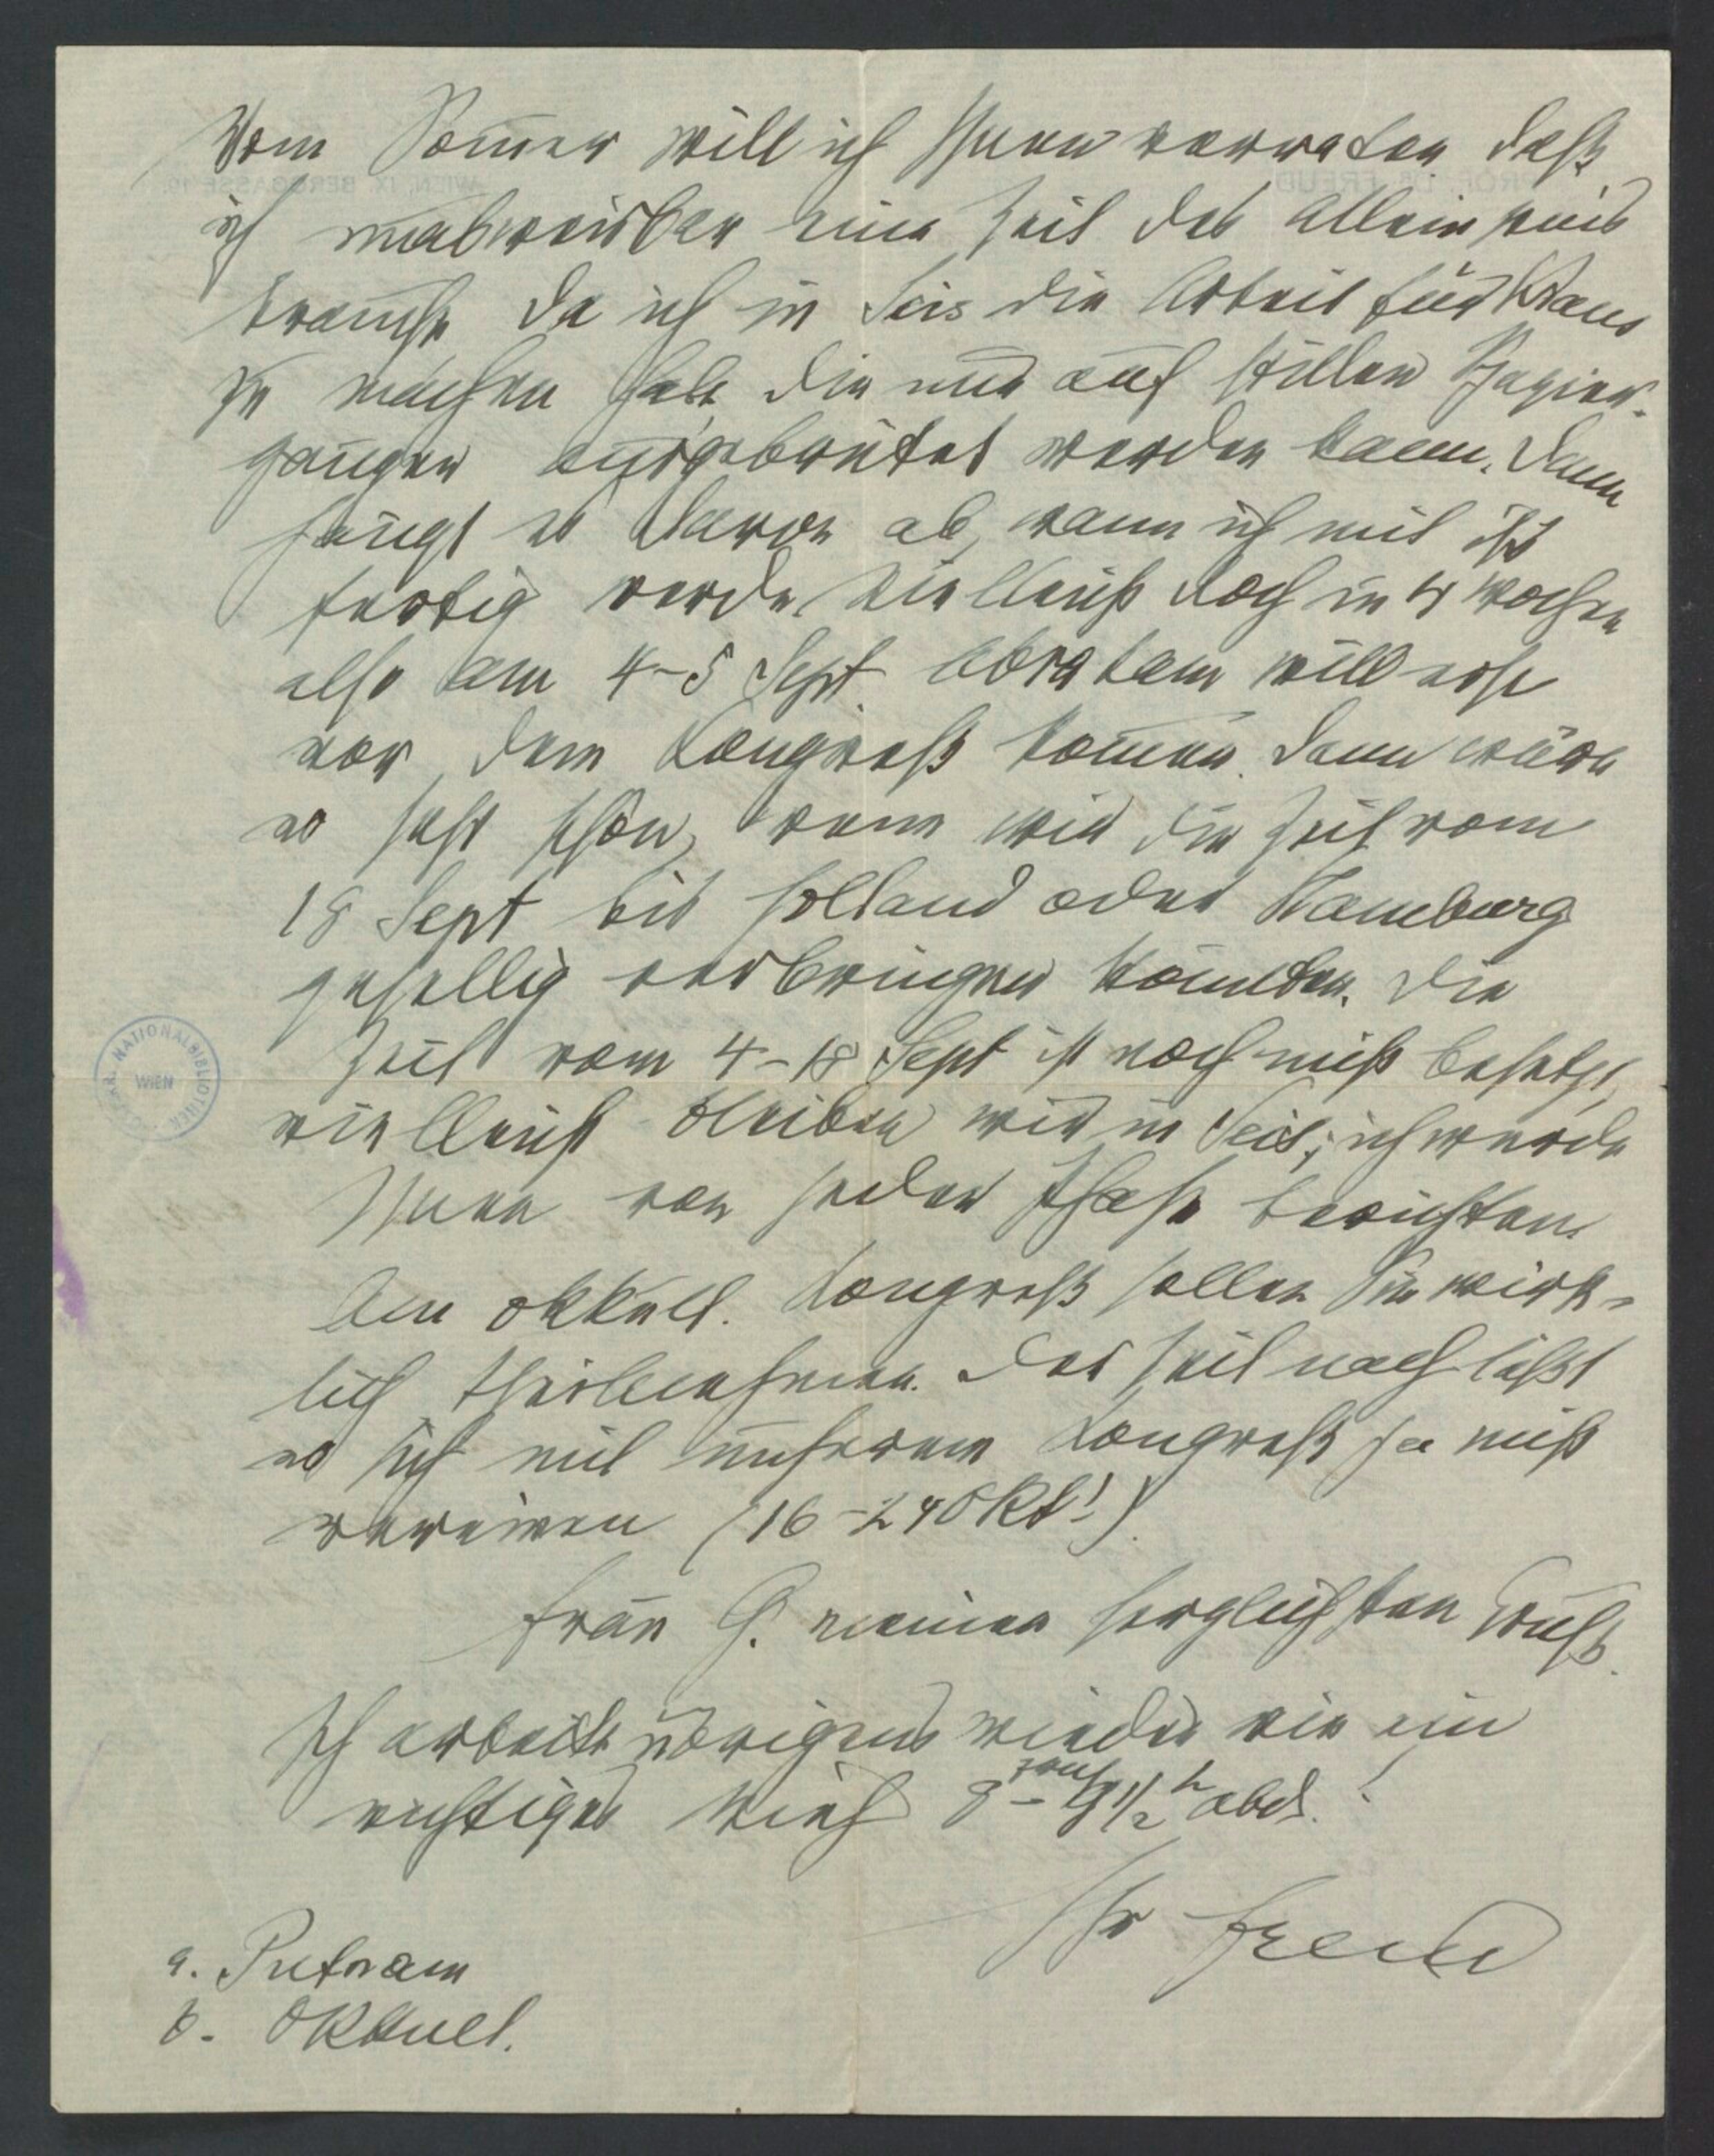 Vom Sommer will ich Ihnen verraten, daß
ich unabweisbar eine Zeit des Alleinseins
brauche, da ich in Seis die Arbeit für Kraus
zu machen habe, die nur auf stillen Spazier-
gängen ausgebrütet werden kann. Dann
hängt es davon ab, wann ich mit ihr
fertig werde, vielleicht doch in 4 Wochen
also am 4–5 Sept. Abraham will erst
vor dem Kongreß kommen. Dann wäre
es sehr schön, wenn wir die Zeit vom
18 Sept bis Holland oder Hamburg
gesellig verbringen könnten. Die
Zeit vom 4–18 Sept ist noch nicht besetzt,
vielleicht bleiben wir in Seis; ich werde
Ihnen von jeder Phase berichten.
Am okkult. Kongreß sollen Sie wirk-
lich theilnehmen. Der Zeit nach läßt
es sich mit unserem Kongreß ja nicht
vereinen (16–24 Okt!).
Frau G. meinen herzlichsten Gruß.
Ich arbeite übrigens wieder wie ein
richtiges Vieh 8 früh – 9 1/2 h abds.!
Ihr Freud
a. Putnam
b. Okkult.
PROF. DR. FREUD
WIEN, IX. BERGGASSE 19.
NATIONALBIBLIOTHEK
WIEN